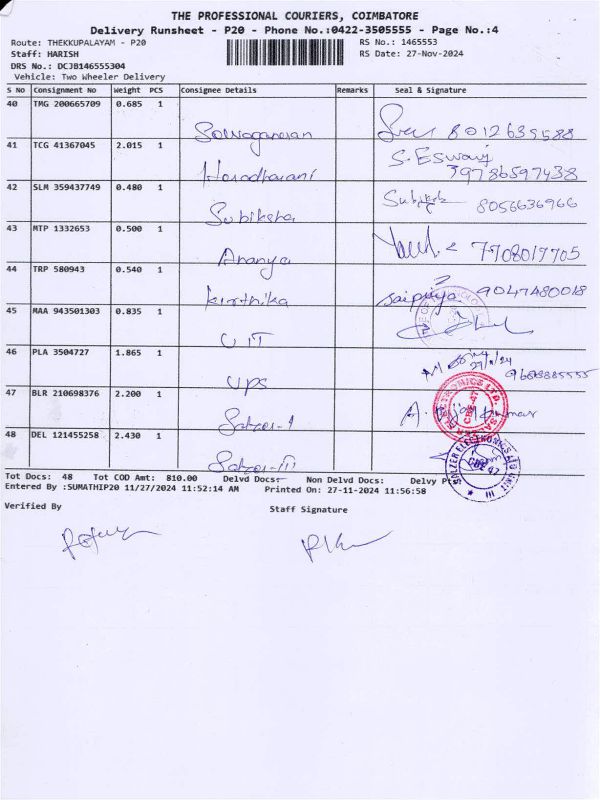 THE PROFESSIONAL COURIERS, COIMBATORE
Delivery Runsheet - P20 - Phone No.:0422-3505555 - Page No.:4
Route: THEKKUPALAYAM - P20
RS No.: 1465553
Staff: HARISH
RS Date: 27-Nov-2024
DRS No.: DCJB146555304
Vehicle: Two Wheeler Delivery
S No Consignment No Weight PCS Consignee Details Remarks Seal & Signature
40 TMG 200665709 0.685 1
8012635588
41 TCG 41367045 2.015 1
S. Eswari
9786597438
42 SLM 359437749 0.480 1 Subiksha
8056636966
43 MTP 1332653 0.500 1 Ananya 7708017705
44 TRP 580943 0.540 1 Kirthika Saipriya 9047480018
45 MAA 943501303 0.835 1 UIT
46 PLA 3504727 1.865 1 UPS 27/11/24
47 BLR 210698376 2.200 1 Salzer-I
48 DEL 121455258 2.430 1 Salzer-III
SALZER ELECTRONICS LTD
SALZER ELECTRONICS LTD UNIT III
Tot Docs: 48 Tot COD Amt: 810.00 Delvd Docs- Non Delvd Docs: Delvy
Entered By :SUMATHIP20 11/27/2024 11:52:14 AM Printed On: 27-11-2024 11:56:58
Verified By Staff Signature